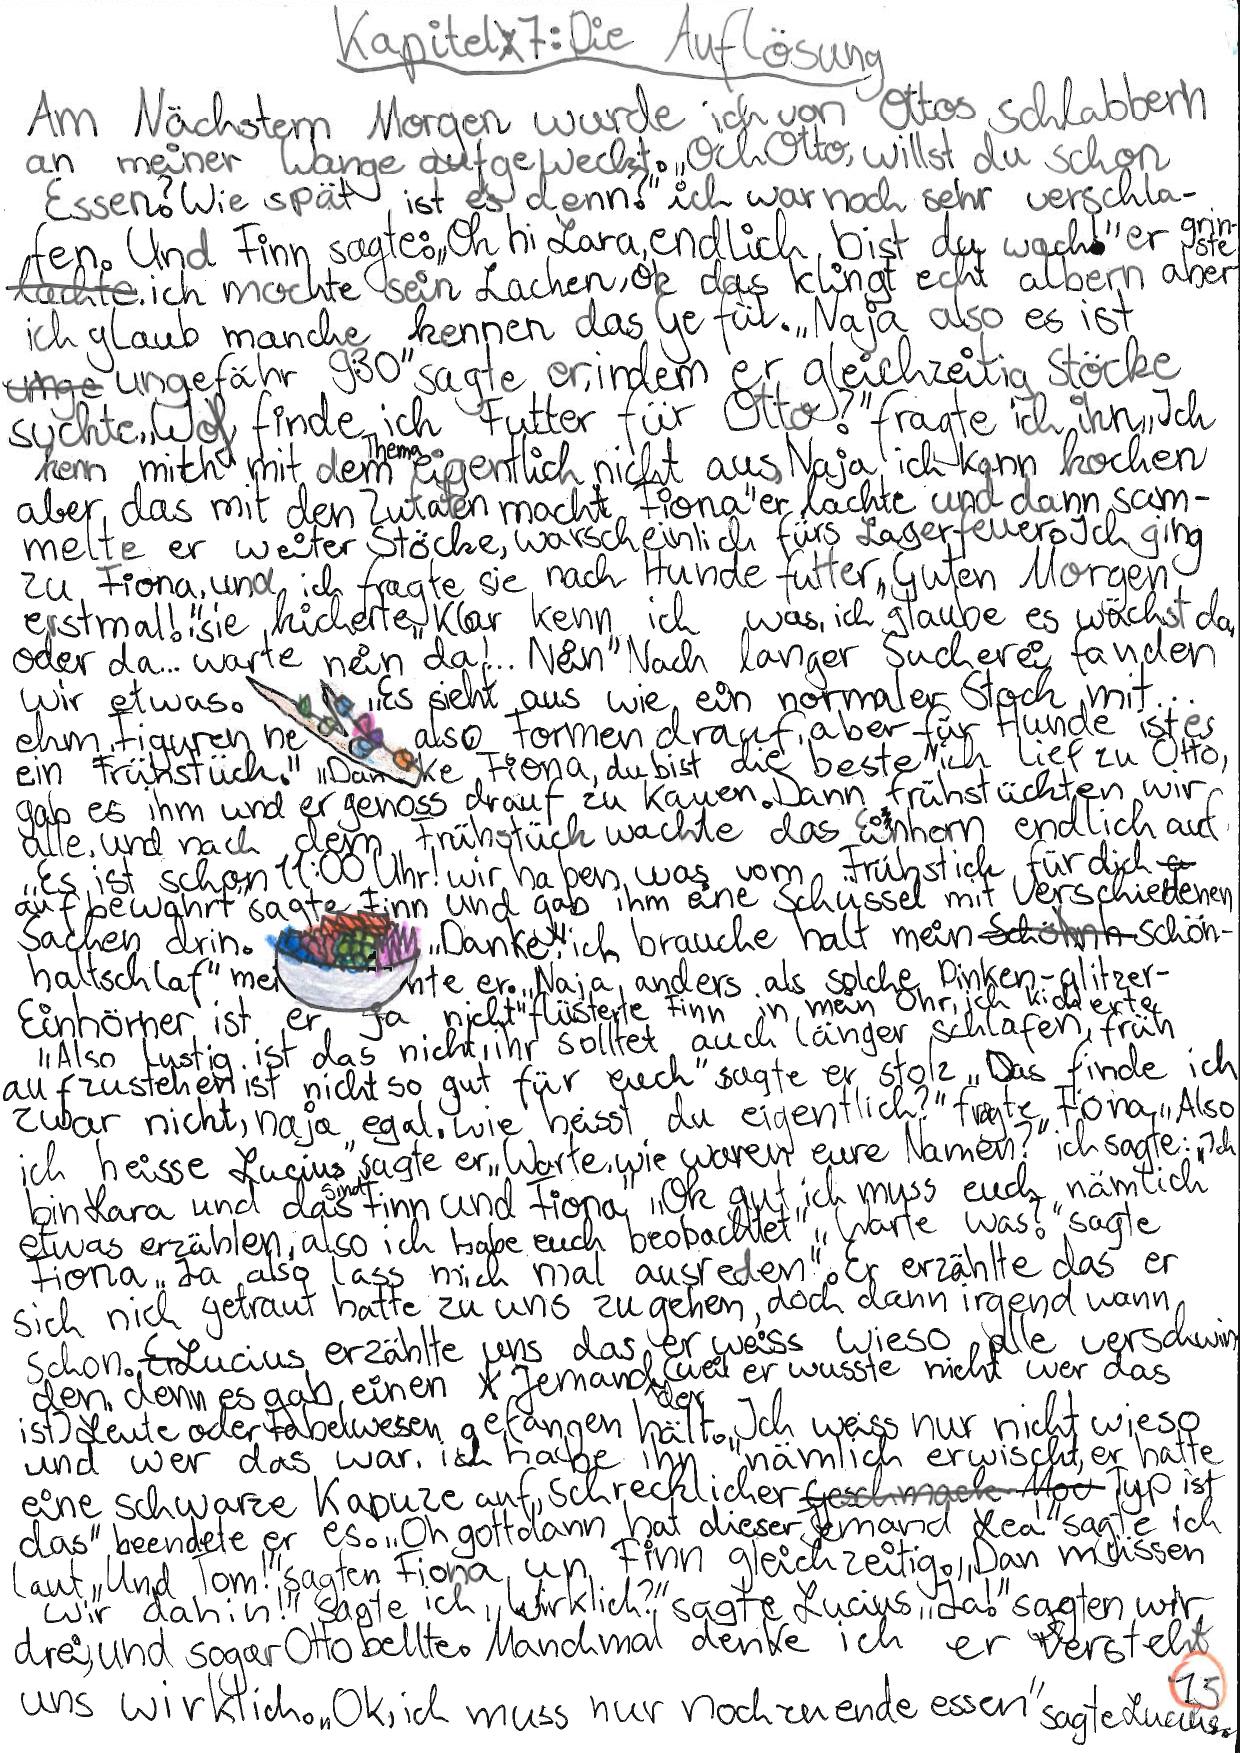 Kapitel 7: Die Auflösung
Am Nächstem Morgen wurde ich von Ottos schlabbern
an meiner Wange aufgeweckt. „Och Otto, willst du schon
Essen? Wie spät ist es denn?" ich war noch sehr verschla-
fen. Und Finn sagte: „Oh hi Lara, endlich bist du wach!" er grin-
ste
lachte. ich mochte sein Lachen, ok das klingt echt albern aber
ich glaub manche kennen das gefül. „Naja also es ist
unge ungefähr 930" sagte er, indem er gleichzeitig Stöcke
suchte. „Wo finde ich Futter für Otto?" fragte ich ihn „Ich
kenn mich mit dem Thema eigentlich nicht aus, Naja ich kann kochen
aber das mit den Zutaten macht Fiona" er lachte und dann sam-
melte er weiter Stöcke, warscheinlich fürs Lagerfeuer. Ich ging
zu Fiona, und ich fragte sie nach Hunde futter, „Guten Morgen
erstmal!" sie kicherte, „Klar kenn ich was, ich glaube es wächst da,
oder da... warte nein da!... Nein" Nach langer Sucherei fanden
wir etwas. „Es sieht aus wie ein normaler Stock mit...
ehm Figuren ne also Formen drauf, aber für Hunde ist es
ein Frühstück." „Danke Fiona, du bist die beste" ich lief zu Otto,
gab es ihm und er genoss drauf zu kauen. Dann frühstückten wir
alle, und nach dem Frühstück wachte das Einhorn endlich auf.
„Es ist schon 11:00 Uhr! wir haben was vom Frühstick für dich
aufbewahrt" sagte Finn und gab ihm eine Schüssel mit Verschiedenen
Sachen drin. „Danke! ich brauche halt mein schön-
haltschlaf" meinte er. „Naja, anders als solche Pinken-glitzer-
Einhörner ist er ja nicht" flüsterte Finn in mein Ohr, ich kicherte
„Also Lustig ist das nicht, ihr solltet auch länger schlafen, früh
aufzustehen ist nicht so gut für euch" sagte er stolz „Das finde ich
zwar nicht, naja egal. wie heisst du eigentlich?" fragte Fiona „Also
ich heisse Lucius" sagte er „Warte, wie waren eure Namen?" ich sagte: „Ich
bin Lara und das sind Finn und Fiona" „Ok gut, ich muss euch nämlich
etwas erzählen, also ich habe euch beobachtet" „Warte was?" sagte
Fiona „Ja also lass mich mal ausreden". Er erzählte das er
sich nich getraut hatte zu uns zu gehen, doch dann irgend wann
schon. Lucius erzählte uns das er weiss wieso alle verschwin
den, denn es gab einen Jemand (weil er wusste nicht wer das
ist) der Leute oder Fabelwesen gefangen hält. „Ich weiss nur nicht wieso
und wer das war. ich habe ihn nämlich erwischt, er hatte
eine schwarze Kapuze auf, Schrecklicher Geschmack Typ ist
das" beendete er es. „Oh gott dann hat dieser Jemand Lea!" sagte ich
laut, „Und Tom!" sagten Fiona un Finn gleichzeitig. „Dan müssen
wir dahin!" sagte ich, „Wirklich?" sagte Lucius „Ja!" sagten wir
drei, und sogar Otto bellte. Manchmal denke ich er versteht
uns wirklich. „Ok, ich muss nur noch zuende essen" sagte Lucius.
15